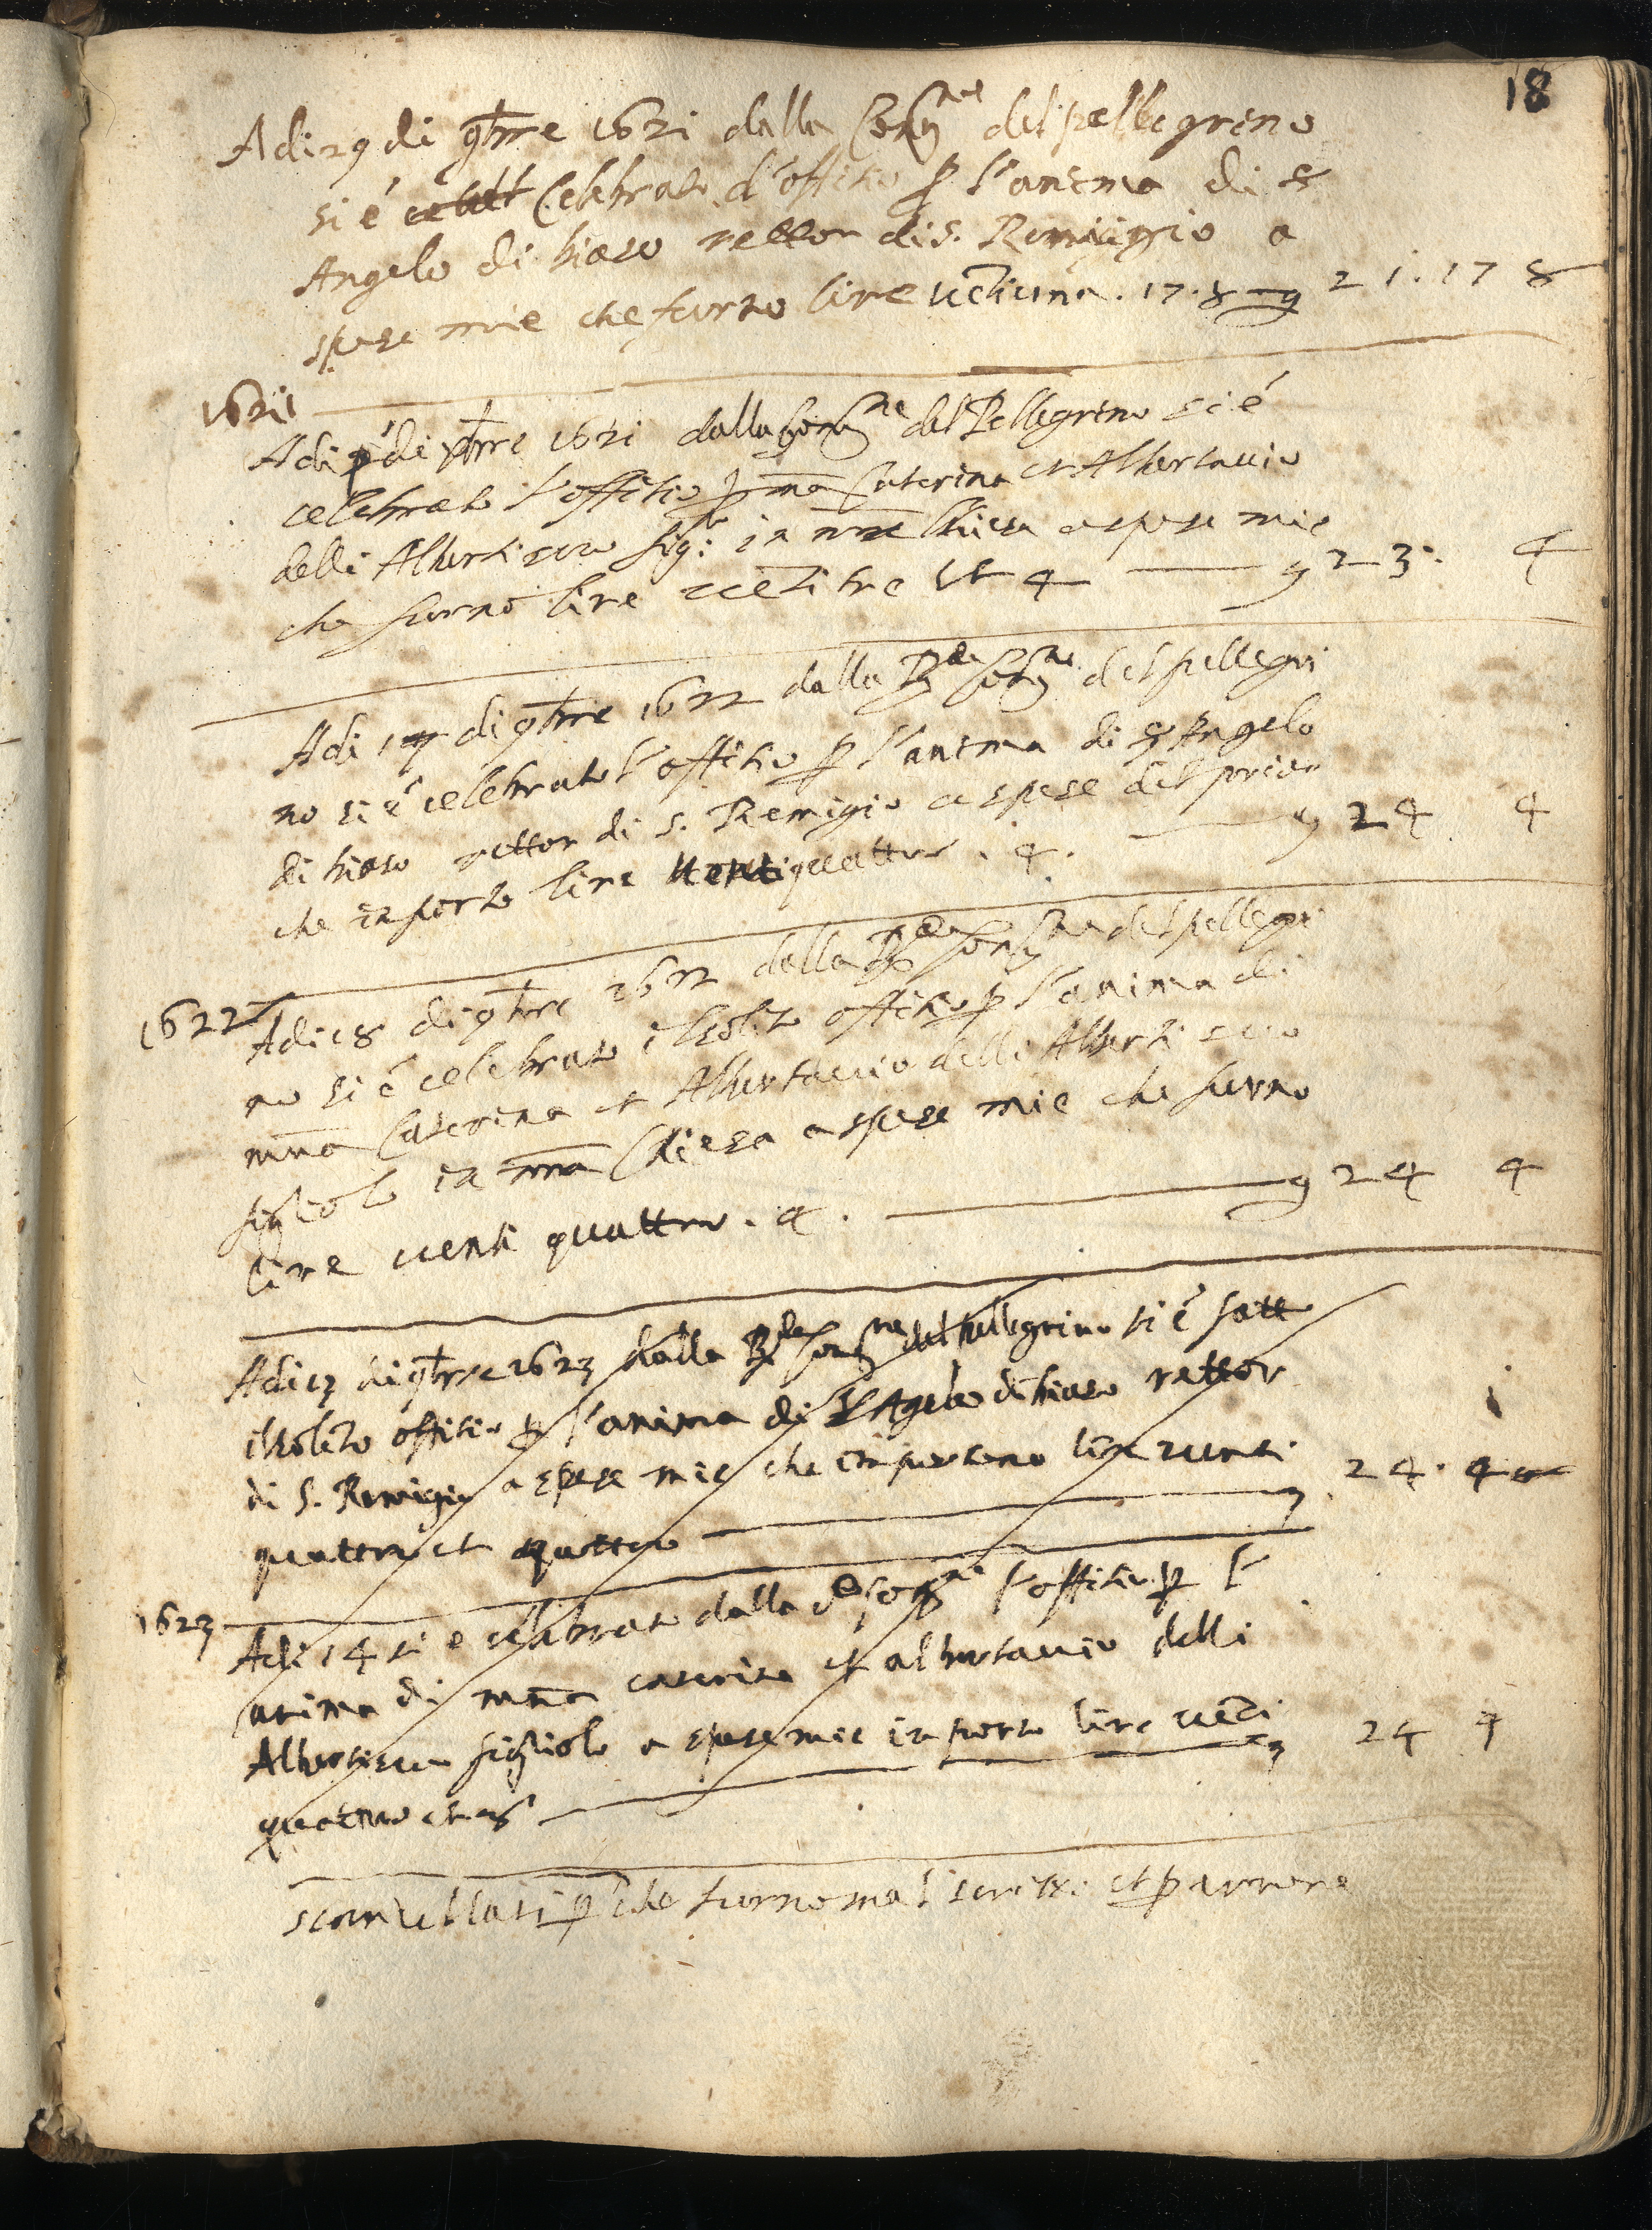 18
Adi 29 di 9bre 1621 dalla Compne del pellegreno
si é celebrato l'offitio p l'anema di sr
Angelo di biaso rettor di S. Remigio a
spese mie che furno lire uētiuna . 17 . 8 — 21 . 17 8
1621
Adi p.º di Xbre 1621 dalla Compne del Pellegreno si é
celebrato l'offitio p mā Caterina et Albertauio
delli Alberti suo figlo in nrā Chiesa a spese mie
che furno lire uētitre et 4 — 23 . 4
Adi 17 di 9bre 1622 dalla Rda Compne del pellegri
no si é celebrato l'offitio p l'anema di sr Angelo
di biaso rettor di S. Remigio a spese del prior
che inporto lire uentiquattro . 4 . — 24 4
1622
Adi 18 di 9bre 1622 dalla Rda Compne del pellegri
no si é celebrato il solito offitio p l'anima di
mna Caterina et Albertauio delli Alberti suo
figliolo in nra Chiesa a spese mie che furno
lire uenti quattro . 4 . — 24 4
Adi 13 di 9bre 1623 dalla Rda Compne del pellegrino si é fatto
il solito offitio p l'anima di sr Agelo di biaso rettor
di S. Remigio a spese mie che inportano lire uenti
quattro et quattro — 24 . 4
1623
Adi 14 si e celabrato dalla Compne l'offitio p l'
anima di mna caterina et albertauio delli
Alberti suo figliolo a spese mie inporto lire uēti
quattro et — 24 4
scancellati p che furno mal scritti et p